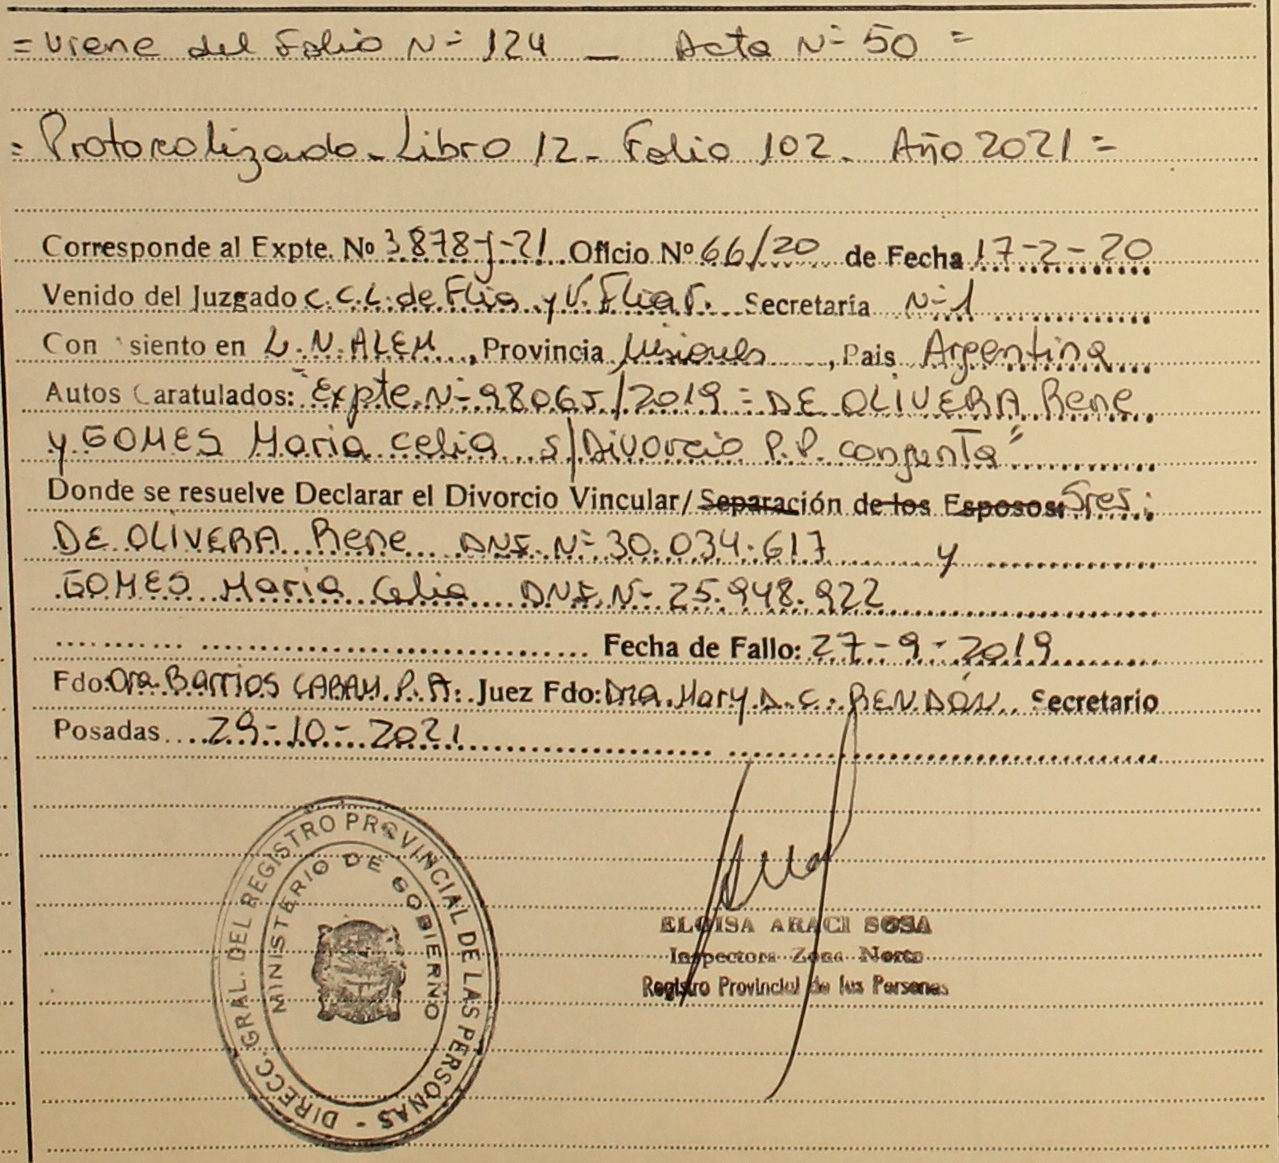 = Viene del Folio N= 124 _ Acta N= 50 =
= Protocolizado - Libro 12 - Folio 102 - Año 2021 =
Corresponde al Expte. Nº 3878-J-21 Oficio Nº 66/20 de Fecha 17-2-20
Venido del Juzgado C.C.L. de Flia y V. Fliar. Secretaría N=1
Con siento en L.N. ALEM, Provincia Misiones, Pais Argentina
Autos Caratulados: "Expte N= 98065/2019 = DE OLIVERA Rene
y GOMES Maria Celia s/Divorcio P.P. conjunta"
Donde se resuelve Declarar el Divorcio Vincular/Separación de los Esposos: Sres.:
DE OLIVERA Rene DNI N= 30.034.617 y
GOMES Maria Celia DNI N- 25.948.922
Fecha de Fallo: 27-9-2019
Fdo: Dra. Barrios CARAM. P.A. Juez Fdo: Dra. Mary D.C. RENDÓN Secretario
Posadas 29-10-2021
DIRECC. GRAL. DEL REGISTRO PROVINCIAL DE LAS PERSONAS -
MINISTERIO DE GOBIERNO
ELOISA ARACI SOSA
Inspectora Zona Norte
Registro Provincial de las Personas